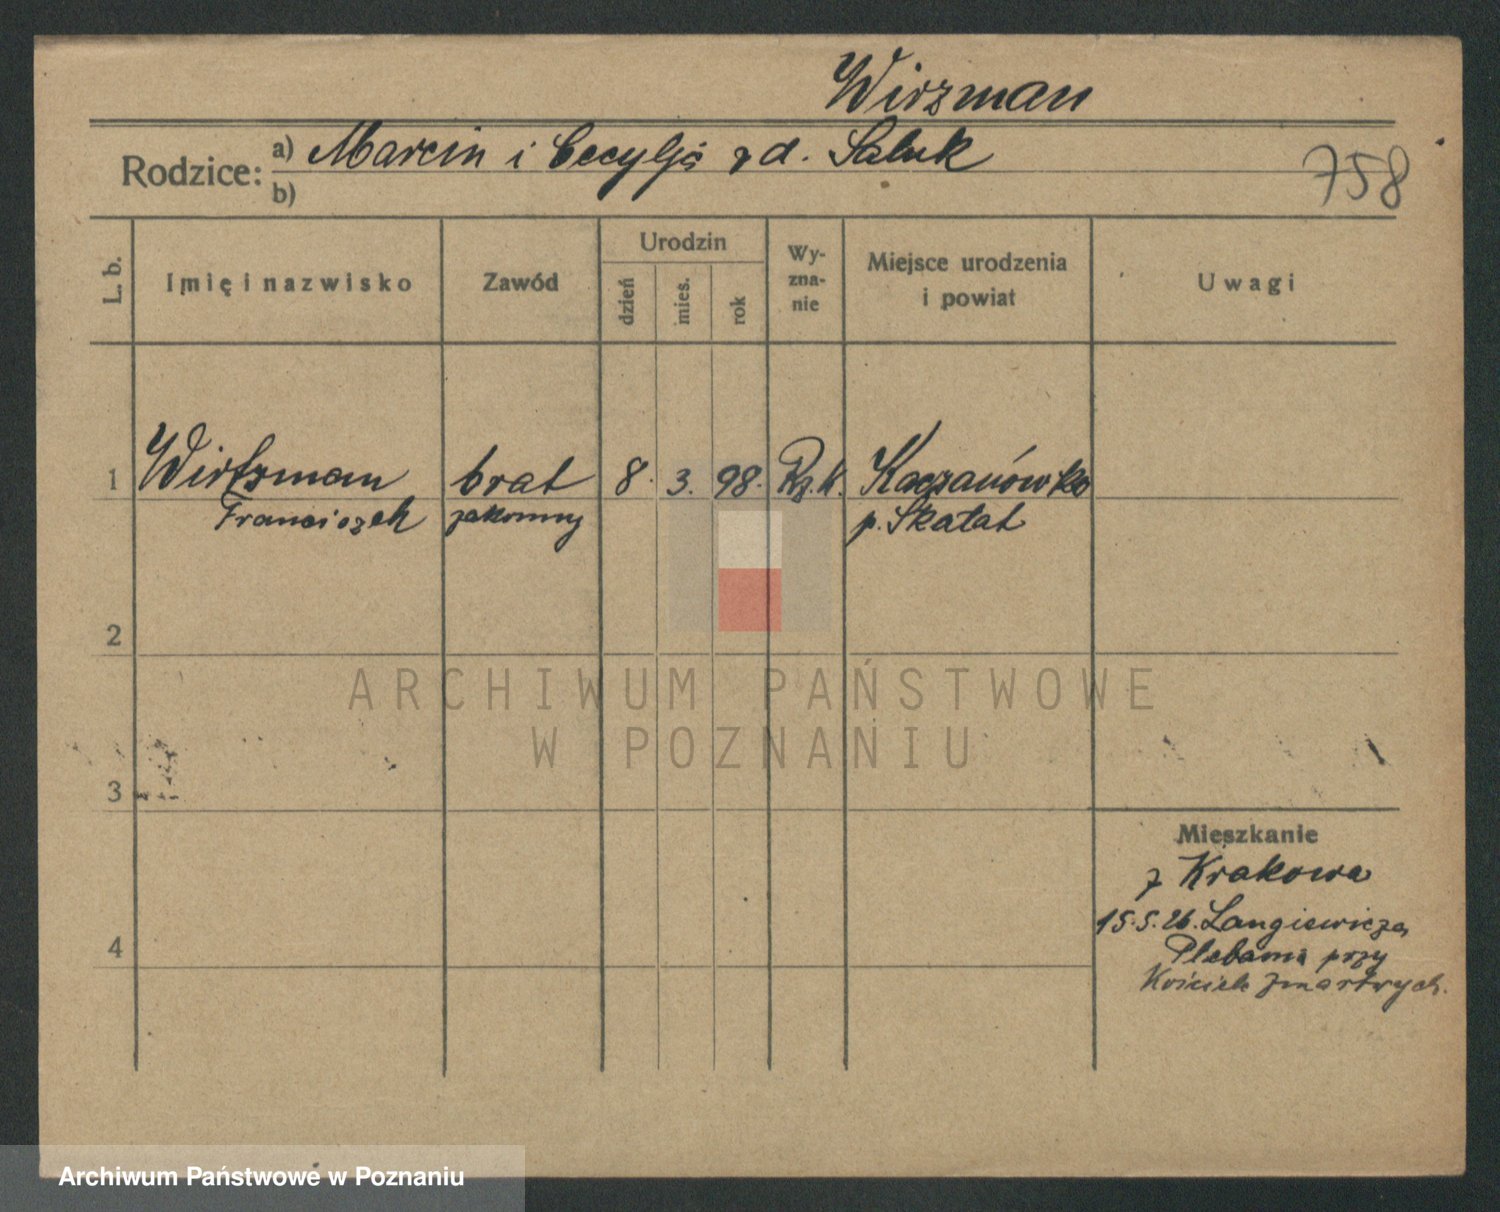 Wirzman
Rodzice: a) Marcin i Cecylja z d. Saluk
b)
758
L. b.
Imię i nazwisko
Zawód
Urodzin
dzień
mies.
rok
Wy-
zna-
nie
Miejsce urodzenia
i powiat
Uwagi
1 Wirtzman brat 8. 3. 98. Rz. k. Kaczanówka
Franciszek zakonny p. Skałat
2
3
4
Mieszkanie
z Krakowa
15.5.26. Langiewicza
Plebania przy
Kościele Zmartwych.
ARCHIWUM PAŃSTWOWE
W POZNANIU
Archiwum Państwowe w Poznaniu